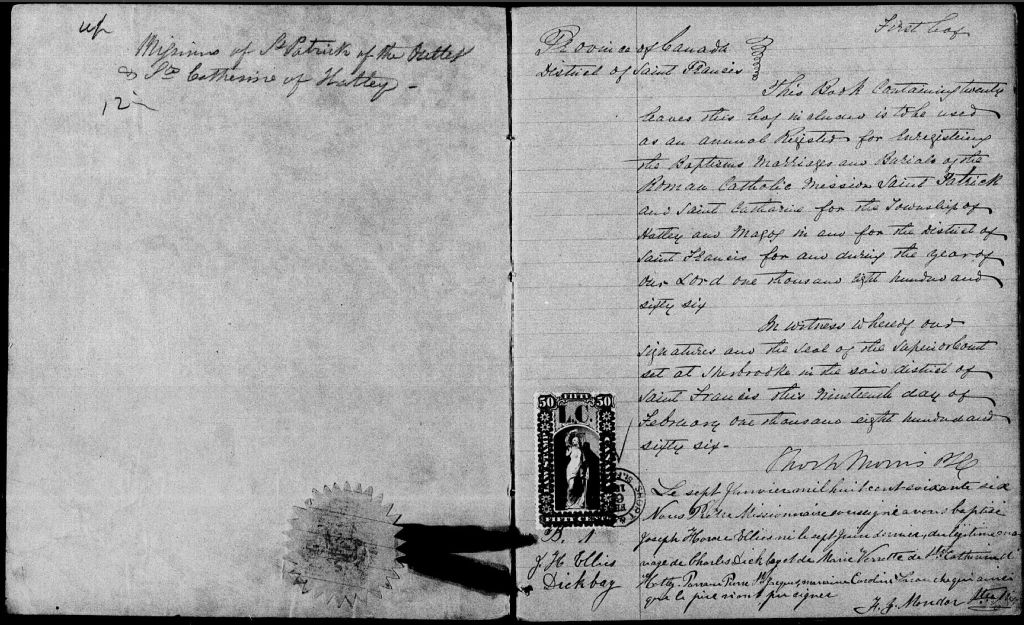 Missions of St Patrick of the
& Ste Catherine of Hatley -
12
First leaf
Province of Canada
District of Saint Francis
This Book Containing twenty
leaves this leaf included is to be used
as an annual Register for Enregistering
the Baptisms Marriages and Burials of the
Roman Catholic Mission Saint Patrick
and Saint Catharine for the Township of
Hatley and Magog in and for the District of
Saint Francis for and during the year of
Our Lord one thousand eight hundred and
sixty six
In witness whereof our
signatures and the seal of the Superior Court
set at Sherbrooke in the said district of
Saint Francis this Nineteenth day of
February one thousand eight hundred and
sixty six -
Morris
FIFTY
50 50
L.C.
LAW STAMP
FIFTY CENTS
B. 1
J. H Ellies
Dickbay
Le sept Janvier mil huit cent soixante six
Nous Prêtre Missionnaire soussigné avons baptisé
Joseph Ellies né le sept Juin dernier, du légitime ma
riage de Charles Dickbay et de Marie de Ste Catherine d
Hatley. Parrain Pierre St Jacques, marraine Caroline
que le père n'ont pu signer